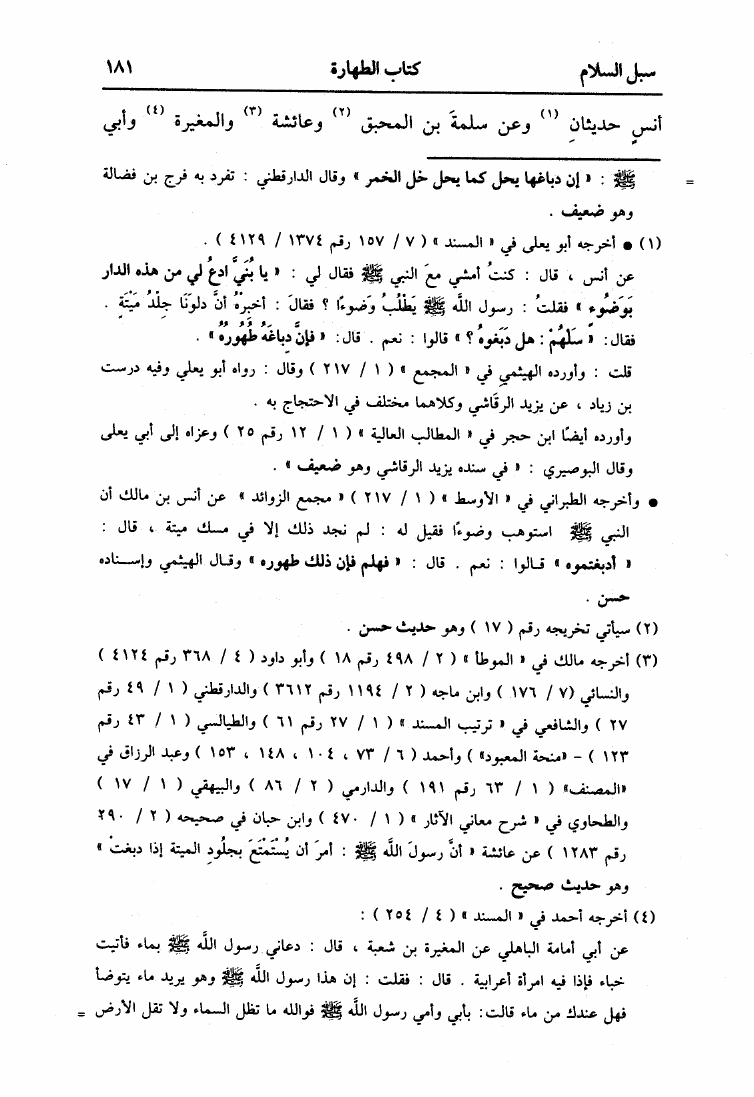 سبل السلام كتاب الطهارة ١٨١
أنسٍ حديثانِ (١) وعن سلمةَ بن المحبق (٢) وعائشة (٣) والمغيرة (٤) وأبي
= ﷺ : « إن دباغها يحل كما يحل خل الخمر » وقال الدارقطني : تفرد به فرج بن فضالة
وهو ضعيف .
(١) ● أخرجه أبو يعلى في « المسند » ( ٧ / ١٥٧ رقم ١٣٧٤ / ٤١٢٩ ) .
عن أنس ، قال : كنتُ أمشي معَ النبي ﷺ فقال لي : « يا بُنَيَّ ادعُ لي من هذه الدار
بَوَضُوءٍ » فقلتُ : رسول اللَّه ﷺ يَطْلُبُ وَضوءًا ؟ فقالَ : أخبِرْهُ أنَّ دلوَنَا جِلْدُ مَيْتَةٍ .
فقال: « سَلْهُمْ : هل دَبَغوهُ ؟ » قالوا : نعم . قال: « فإنَّ دباغَهُ طُهُورُهُ » .
قلت : وأورده الهيثمي في « المجمع » ( ١ / ٢١٧ ) وقال : رواه أبو يعلي وفيه درست
بن زياد ، عن يزيد الرقاشي وكلاهما مختلف في الاحتجاج به .
وأورده أيضًا ابن حجر في « المطالب العالية » ( ١ / ١٢ رقم ٢٥ ) وعزاه إلى أبي يعلى
وقال البوصيري : « في سنده يزيد الرقاشي وهو ضعيف » .
● وأخرجه الطبراني في « الأوسط » ( ١ / ٢١٧ ) « مجمع الزوائد » عن أنس بن مالك أن
النبي ﷺ استوهب وضوءًا فقيل له : لم نجد ذلك إلا في مسك ميتة ، قال :
« أدبغتموه » قالوا : نعم . قال : « فهلم فإن ذلك طهوره » وقال الهيثمي وإسناده
حسن .
(٢) سيأتي تخريجه رقم ( ١٧ ) وهو حديث حسن .
(٣) أخرجه مالك في « الموطأ » ( ٢ / ٤٩٨ رقم ١٨ ) وأبو داود ( ٤ / ٣٦٨ رقم ٤١٢٤ )
والنسائي (٧ / ١٧٦ ) وابن ماجه ( ٢ / ١١٩٤ رقم ٣٦١٢ ) والدارقطني ( ١ / ٤٩ رقم
٢٧ ) والشافعي في « ترتيب المسند » ( ١ / ٢٧ رقم ٦١ ) والطيالسي ( ١ / ٤٣ رقم
١٢٣ ) - «منحة المعبود» ) وأحمد ( ٦ / ٧٣ ، ١٠٤ ، ١٤٨ ، ١٥٣ ) وعبد الرزاق في
«المصنف» ( ١ / ٦٣ رقم ١٩١ ) والدارمي ( ٢ / ٨٦ ) والبيهقي ( ١ / ١٧ )
والطحاوي في « شرح معاني الآثار » ( ١ / ٤٧٠ ) وابن حبان في صحيحه ( ٢ / ٢٩٠
رقم ١٢٨٣ ) عن عائشة « أنَّ رسولَ اللَّه ﷺ : أمرَ أن يُسْتَمْتَعَ بجلُودِ الميتة إذا دبغتْ »
وهو حديث صحيح .
(٤) أخرجه أحمد في « المسند » ( ٤ / ٢٥٤ ) :
عن أبي أمامة الباهلي عن المغيرة بن شعبة ، قال : دعاني رسول اللَّه ﷺ بماء فأتيت
خباء فإذا فيه امرأة أعرابية . قال : فقلت : إن هذا رسول اللَّه ﷺ وهو يريد ماء يتوضأ
فهل عندك من ماء قالت: بأبي وأمي رسول اللَّه ﷺ فوالله ما تظل السماء ولا تقل الأرض =